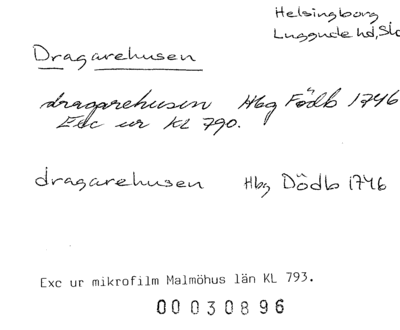 Helsingborg
Luggude hd, Sk
Dragarehusen
dragarehusen Hbg Födb 1746
Exc ur KL 790.
dragarehusen Hbg Dödb 1746
Exc ur mikrofilm Malmöhus län KL 793.
00030896